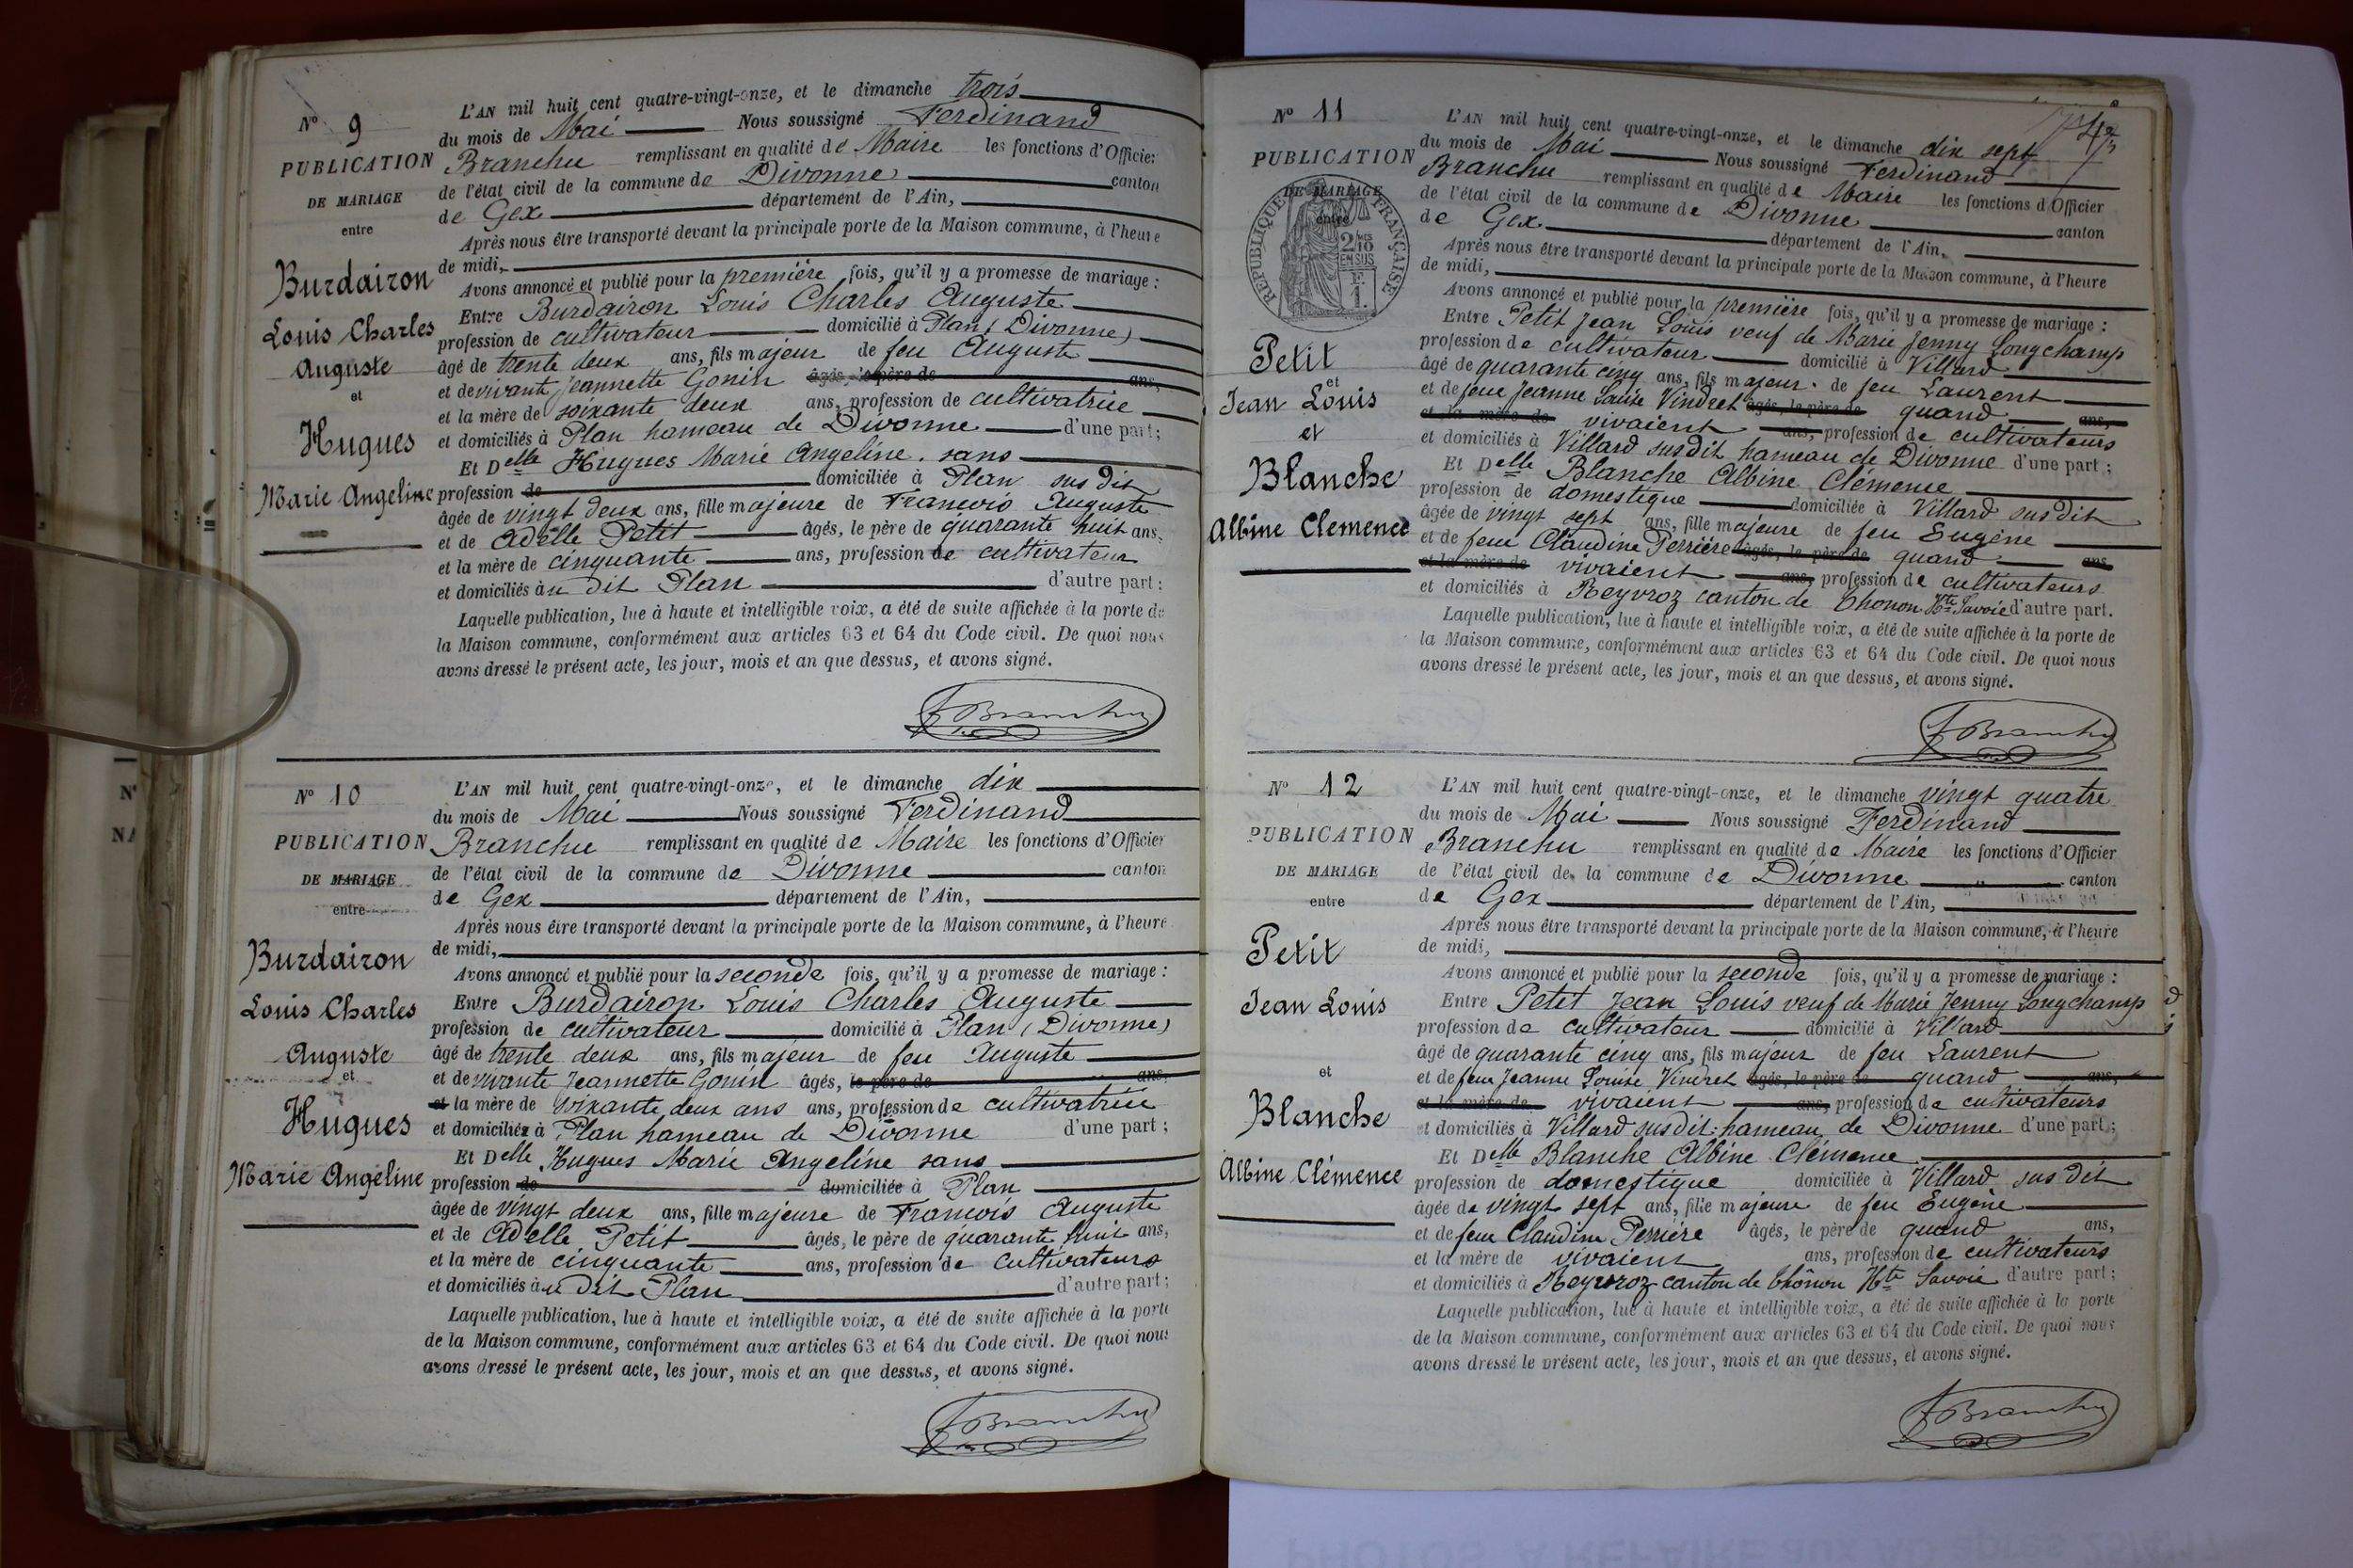 N° 9
PUBLICATION
DE MARIAGE
entre
Burdairon
Louis Charles
Auguste
et
Hugues
Marie Angeline
L'AN mil huit cent quatre-vingt-onze, et le dimanche trois
du mois de Mai Nous soussigné Ferdinand
Branchu remplissant en qualité de Maire les fonctions d'Officier
de l'état civil de la commune de Divonne canton
de Gex département de l'Ain,
Après nous être transporté devant la principale porte de la Maison commune, à l'heure
de midi,
Avons annoncé et publié pour la première fois, qu'il y a promesse de mariage :
Entre Burdairon Louis Charles Auguste
profession de cultivateur domicilié à Plan (Divonne)
âgé de trente deux ans, fils majeur de feu Auguste
et de vivante Jeannette Gonin âgés, le père de ans,
et la mère de soixante deux ans, profession de cultivatrice
et domiciliés à Plan hameau de Divonne d'une part ;
Et Delle Hugues Marie Angeline . sans
profession de domiciliée à Plan sus dit
âgée de vingt deux ans, fille majeure de François Auguste
et de Adelle Petit âgés, le père de quarante huit ans,
et la mère de cinquante ans, profession de cultivateur
et domiciliés à u dit Plan d'autre part :
Laquelle publication, lue à haute et intelligible voix, a été de suite affichée à la porte de
la Maison commune, conformément aux articles 63 et 64 du Code civil. De quoi nous
avons dressé le présent acte, les jour, mois et an que dessus, et avons signé.
F Branchu
N° 10
PUBLICATION
DE MARIAGE
entre
Burdairon
Louis Charles
Auguste
et
Hugues
Marie Angeline
L'AN mil huit cent quatre-vingt-onze, et le dimanche dix
du mois de Mai Nous soussigné Ferdinand
Branchu remplissant en qualité de Maire les fonctions d'Officier
de l'état civil de la commune de Divonne canton
de Gex département de l'Ain,
Après nous être transporté devant la principale porte de la Maison commune, à l'heure
de midi,
Avons annoncé et publié pour la seconde fois, qu'il y a promesse de mariage :
Entre Burdairon Louis Charles Auguste
profession de cultivateur domicilié à Plan (Divonne)
âgé de trente deux ans, fils majeur de feu Auguste
et de vivante Jeannette Gonin âgés, le père de ans,
et la mère de soixante deux ans ans, profession de cultivatrice
et domiciliés à Plan hameau de Divonne d'une part ;
Et Delle Hugues Marie Angeline sans
profession de domiciliée à Plan
âgée de vingt deux ans, fille majeure de François Auguste
et de Adelle Petit âgés, le père de quarante huit ans,
et la mère de cinquante ans, profession de cultivateurs
et domiciliés à u dit Plan d'autre part ;
Laquelle publication, lue à haute et intelligible voix, a été de suite affichée à la porte
de la Maison commune, conformément aux articles 63 et 64 du Code civil. De quoi nous
avons dressé le présent acte, les jour, mois et an que dessus, et avons signé.
F Branchu
N° 11
PUBLICATION
DE MARIAGE
entre
RÉPUBLIQUE FRANÇAISE
2/10 EN SUS
1 F.
Petit
et
Jean Louis
et
Blanche
Albine Clemence
L'AN mil huit cent quatre-vingt-onze, et le dimanche dix sept
du mois de Mai Nous soussigné Ferdinand
Branchu remplissant en qualité de Maire les fonctions d'Officier
de l'état civil de la commune de Divonne canton
de Gex département de l'Ain,
Après nous être transporté devant la principale porte de la Maison commune, à l'heure
de midi,
Avons annoncé et publié pour la première fois, qu'il y a promesse de mariage :
Entre Petit Jean Louis veuf de Marie Jenny Longchamp
profession de cultivateur domicilié à Villard
âgé de quarante cinq ans, fils majeur de feu Laurent
et de feue Jeanne Louise Vindret âgés, le père de quand ans,
et la mère de vivaient ans, profession de cultivateurs
et domiciliés à Villard susdit hameau de Divonne d'une part ;
Et Delle Blanche Albine Clémence
profession de domestique domiciliée à Villard susdit
âgée de vingt sept ans, fille majeure de feu Eugène
et de feue Claudine Perrière âgés, le père de quand ans,
et la mère de vivaient ans, profession de cultivateurs
et domiciliés à Reyvroz canton de Thonon Hte Savoie d'autre part.
Laquelle publication, lue à haute et intelligible voix, a été de suite affichée à la porte de
la Maison commune, conformément aux articles 63 et 64 du Code civil. De quoi nous
avons dressé le présent acte, les jour, mois et an que dessus, et avons signé.
F Branchu
N° 12
PUBLICATION
DE MARIAGE
entre
Petit
Jean Louis
et
Blanche
Albine Clémence
L'AN mil huit cent quatre-vingt-onze, et le dimanche vingt quatre
du mois de Mai Nous soussigné Ferdinand
Branchu remplissant en qualité de Maire les fonctions d'Officier
de l'état civil de la commune de Divonne canton
de Gex département de l'Ain,
Après nous être transporté devant la principale porte de la Maison commune, à l'heure
de midi,
Avons annoncé et publié pour la seconde fois, qu'il y a promesse de mariage :
Entre Petit Jean Louis veuf de Marie Jenny Longchamp
profession de cultivateur domicilié à Villard
âgé de quarante cinq ans, fils majeur de feu Laurent
et de feue Jeanne Louise Vindret âgés, le père de quand ans,
et la mère de vivaient ans, profession de cultivateurs
et domiciliés à Villard susdit hameau de Divonne d'une part ;
Et Delle Blanche Albine Clémence
profession de domestique domiciliée à Villard sus dit
âgée de vingt sept ans, fille majeure de feu Eugène
et de feue Claudine Perrière âgés, le père de quand ans,
et la mère de vivaient ans, profession de cultivateurs
et domiciliés à Reyvroz canton de Thônon Hte Savoie d'autre part ;
Laquelle publication, lue à haute et intelligible voix, a été de suite affichée à la porte
de la Maison commune, conformément aux articles 63 et 64 du Code civil. De quoi nous
avons dressé le présent acte, les jour, mois et an que dessus, et avons signé.
F Branchu